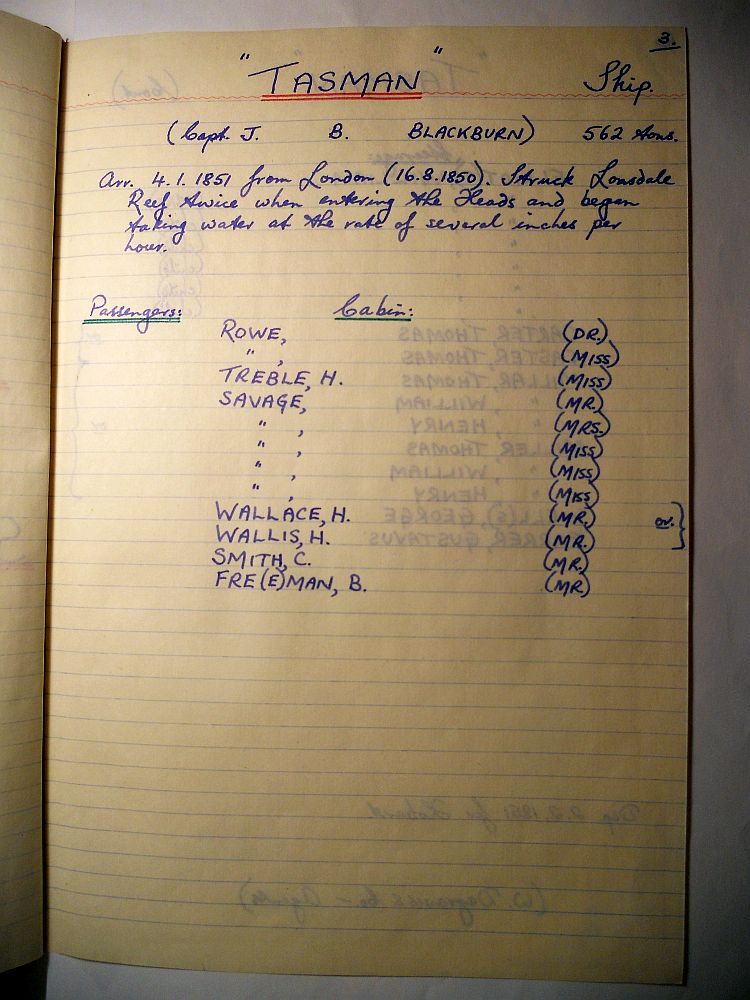 3.
"TASMAN" Ship.
(Capt. J. B. BLACKBURN) 562 tons.
Arr. 4.1.1851 from London (16.8.1850). Struck Lonsdale
Reef twice when entering the Heads and began
taking water at the rate of several inches per
hour.
Passengers: Cabin:
ROWE, (DR.)
" , (MISS)
TREBLE, H. (MISS)
SAVAGE, (MR.)
" , (MRS.)
" , (MISS)
" , (MISS)
" , (MISS)
WALLACE, H. (MR.)
WALLIS, H. (MR.) or. }
SMITH, C. (MR.)
FRE(E)MAN, B. (MR)